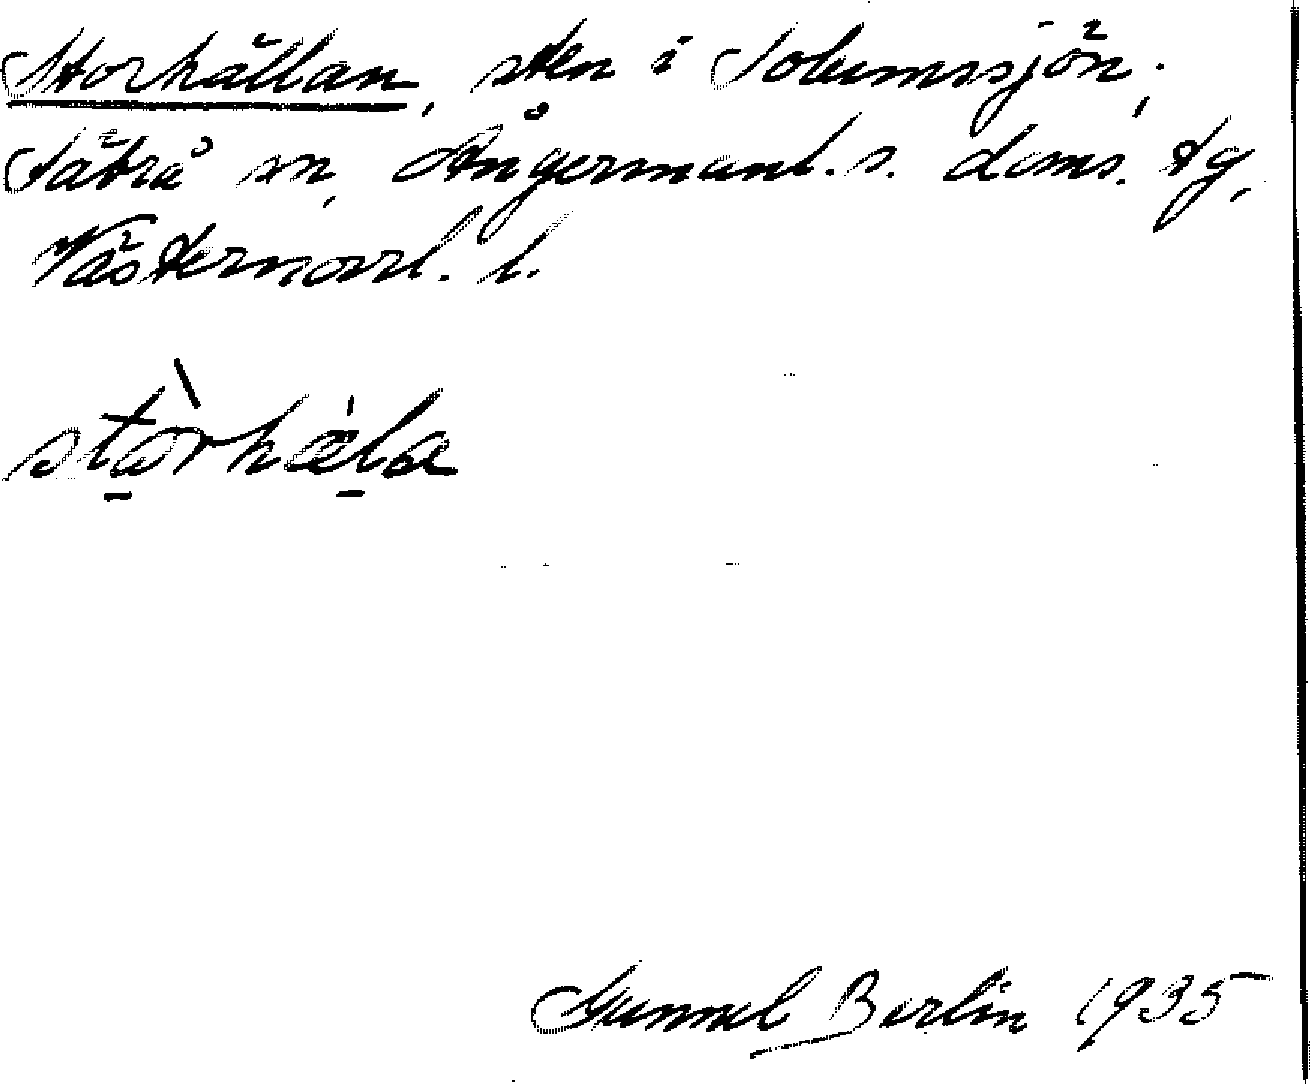 Storhällan, sten i Solumssjön,
Säbrå sn, Ångermanl. s. doms. tg,
Västernorrl. l.
stòrhæ̀la
Gunnel Berlin 1935